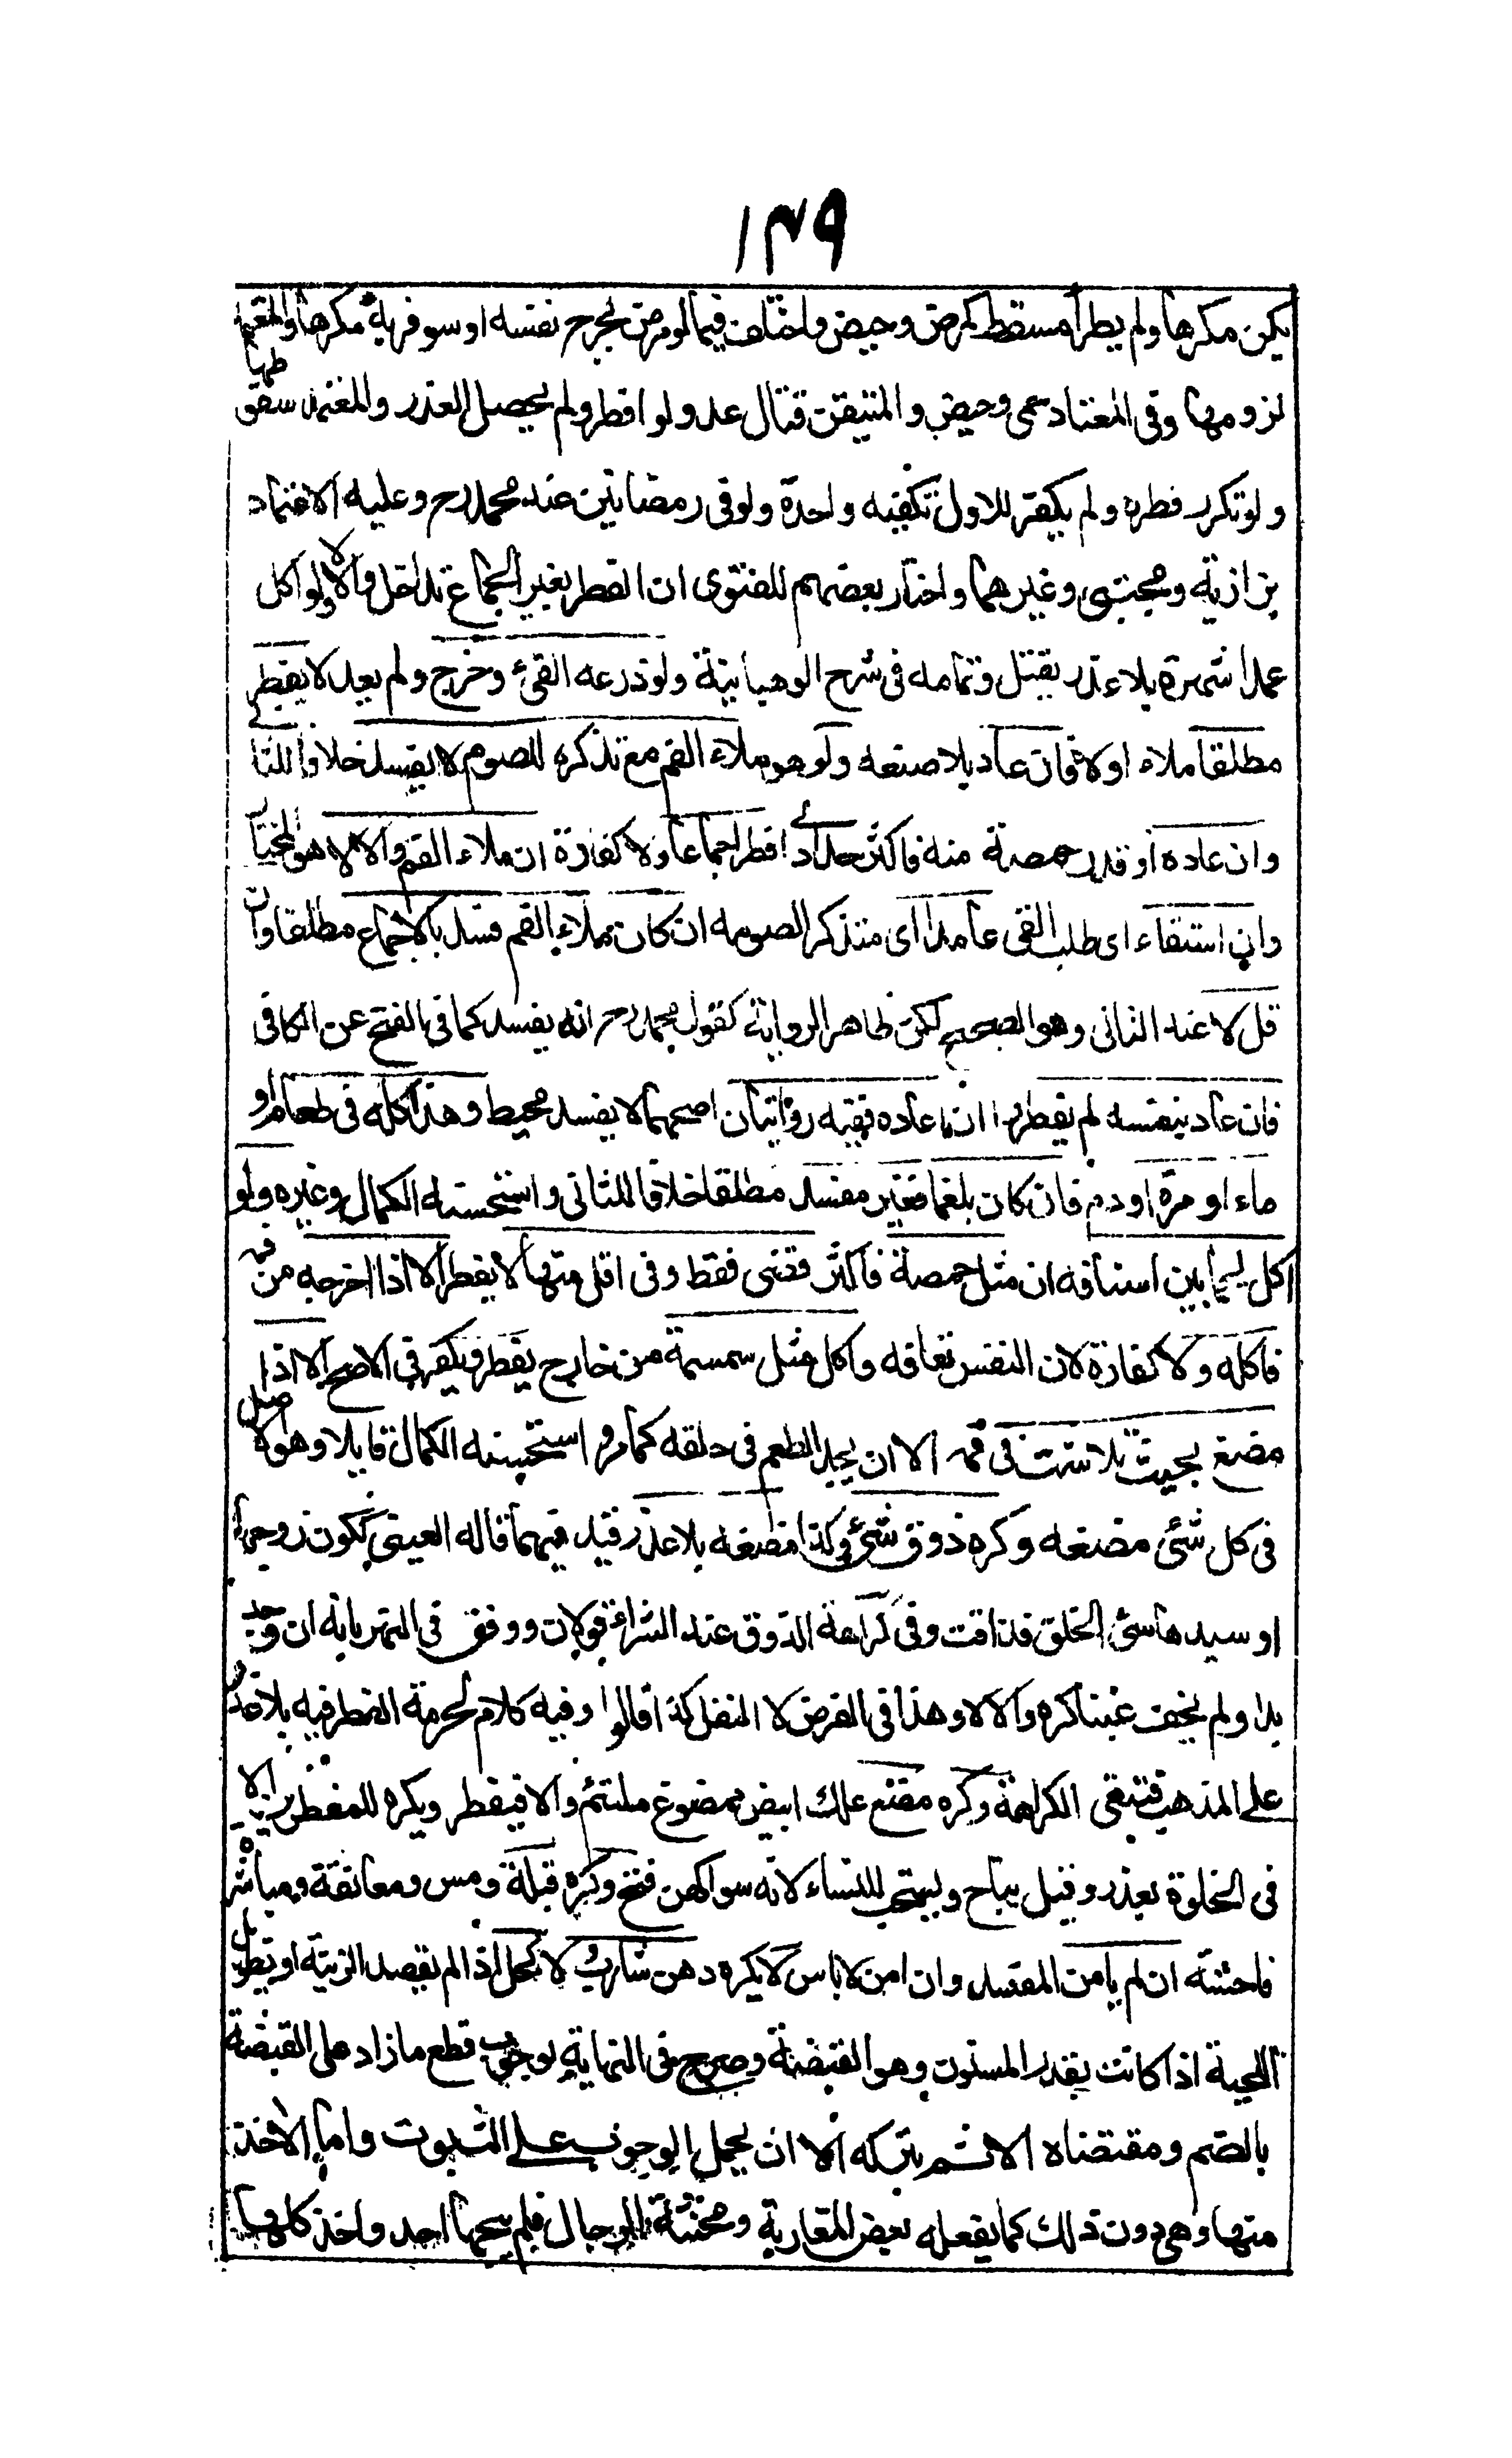 ١٣٩
يكن مكرها ولم يطرأ مسقط كمرض وحيض واختلف فيما لو مرض بجرح نفسه او سوفر به مكرها والمعتمد
لزومها وفى المعتاد حمى وحيض والمتيقن قتال عدو لو افطر ولم يحصل العذر والمعتمد سقوطها
ولو تكرر فطره ولم يكفر للاول تكفيه واحدة ولو فى رمضانين عند محمد رح وعليه الاعتماد
بزازية ومجتبى وغيرهما واختار بعضهم للفتوى ان الفطر بغير الجماع تداخل والا لا ولو اكل
عمدا شهرة بلا عذر يقتل وتمامه فى شرح الوهبانية ولو ذرعه القئ وخرج ولم يعد لا يفطر
مطلقا ملاء اولا فان عاد بلا صنعه ولو هو ملاء الفم مع تذكره للصوم لا يفسد خلافا للثانى
وان عاده او قدر حمصة منه فاكثر حدادى افطر اجماعا ولا كفارة ان ملاء الفم والا لا هو المختار
وان استقاء اى طلب القئ عامدا اى متذكرا لصومه ان كان ملاء الفم فسد بالاجماع مطلقا وان
قل لا عند الثانى وهو الصحيح لكن ظاهر الرواية كقول محمد رح انه يفسد كما فى الفتح عن الكافى
فان عاد بنفسه لم يفطر وان اعاده ففيه روايتان اصحهما لا يفسد محيط وهذا كله فى طعام او
ماء او مرة او دم فان كان بلغما فغير مفسد مطلقا خلافا للثانى واستحسنه الكمال وغيره ولو
اكل لحما بين اسنانه ان مثل حمصة فاكثر قضى فقط وفى اقل منها لا يفطر الا اذا اخرجه من فمه
فاكله ولا كفارة لان النفس تعافه واكل مثل سمسمة من خارج يفطر ويكفر فى الاصح الا اذا
مضغ بحيث تلاشت فى فمه الا ان يجد الطعم فى حلقه كما مر واستحسنه الكمال قايلا وهو الاصل
فى كل شئ مضغه وكره ذوق شئ وكذا مضغه بلا عذر قيد فيهما قاله العينى ككون زوجها
او سيدها سئ الخلق فذاقت وفى كراهة الذوق عند الشراء قولان ووفق فى النهر بانه ان وجد
بدا ولم يخف غبنا كره والا لا وهذا فى الفرض لا النفل كذا قالوا وفيه كلام لحرمة الفطر فيه بلا عذر
على المذهب فتبقى الكراهة وكره مضغ علك ابيض ممضوغ ملتئم والا فيفطر ويكره للمفطرين الا
فى الخلوة بعذر وقيل يباح ويستحب للنساء لانه سواكهن فتح وكره قبلة ومس ومعانقة ومباشرة
فاحشة ان لم يامن المفسد وان امن لا باس لا يكره دهن شارب ولا كحل اذا لم يقصد الزينة او تطويل
اللحية اذا كانت بقدر المسنون وهو القبضة وصرح فى النهاية بوجوب قطع ما زاد على القبضة
بالضم ومقتضاه الاثم بتركه الا ان يحمل الوجوب على الثبوت واما الاخذ
منها وهى دون ذلك كما يفعله بعض المغاربة ومخنثة الرجال فلم يبحها احد واخذ كلها